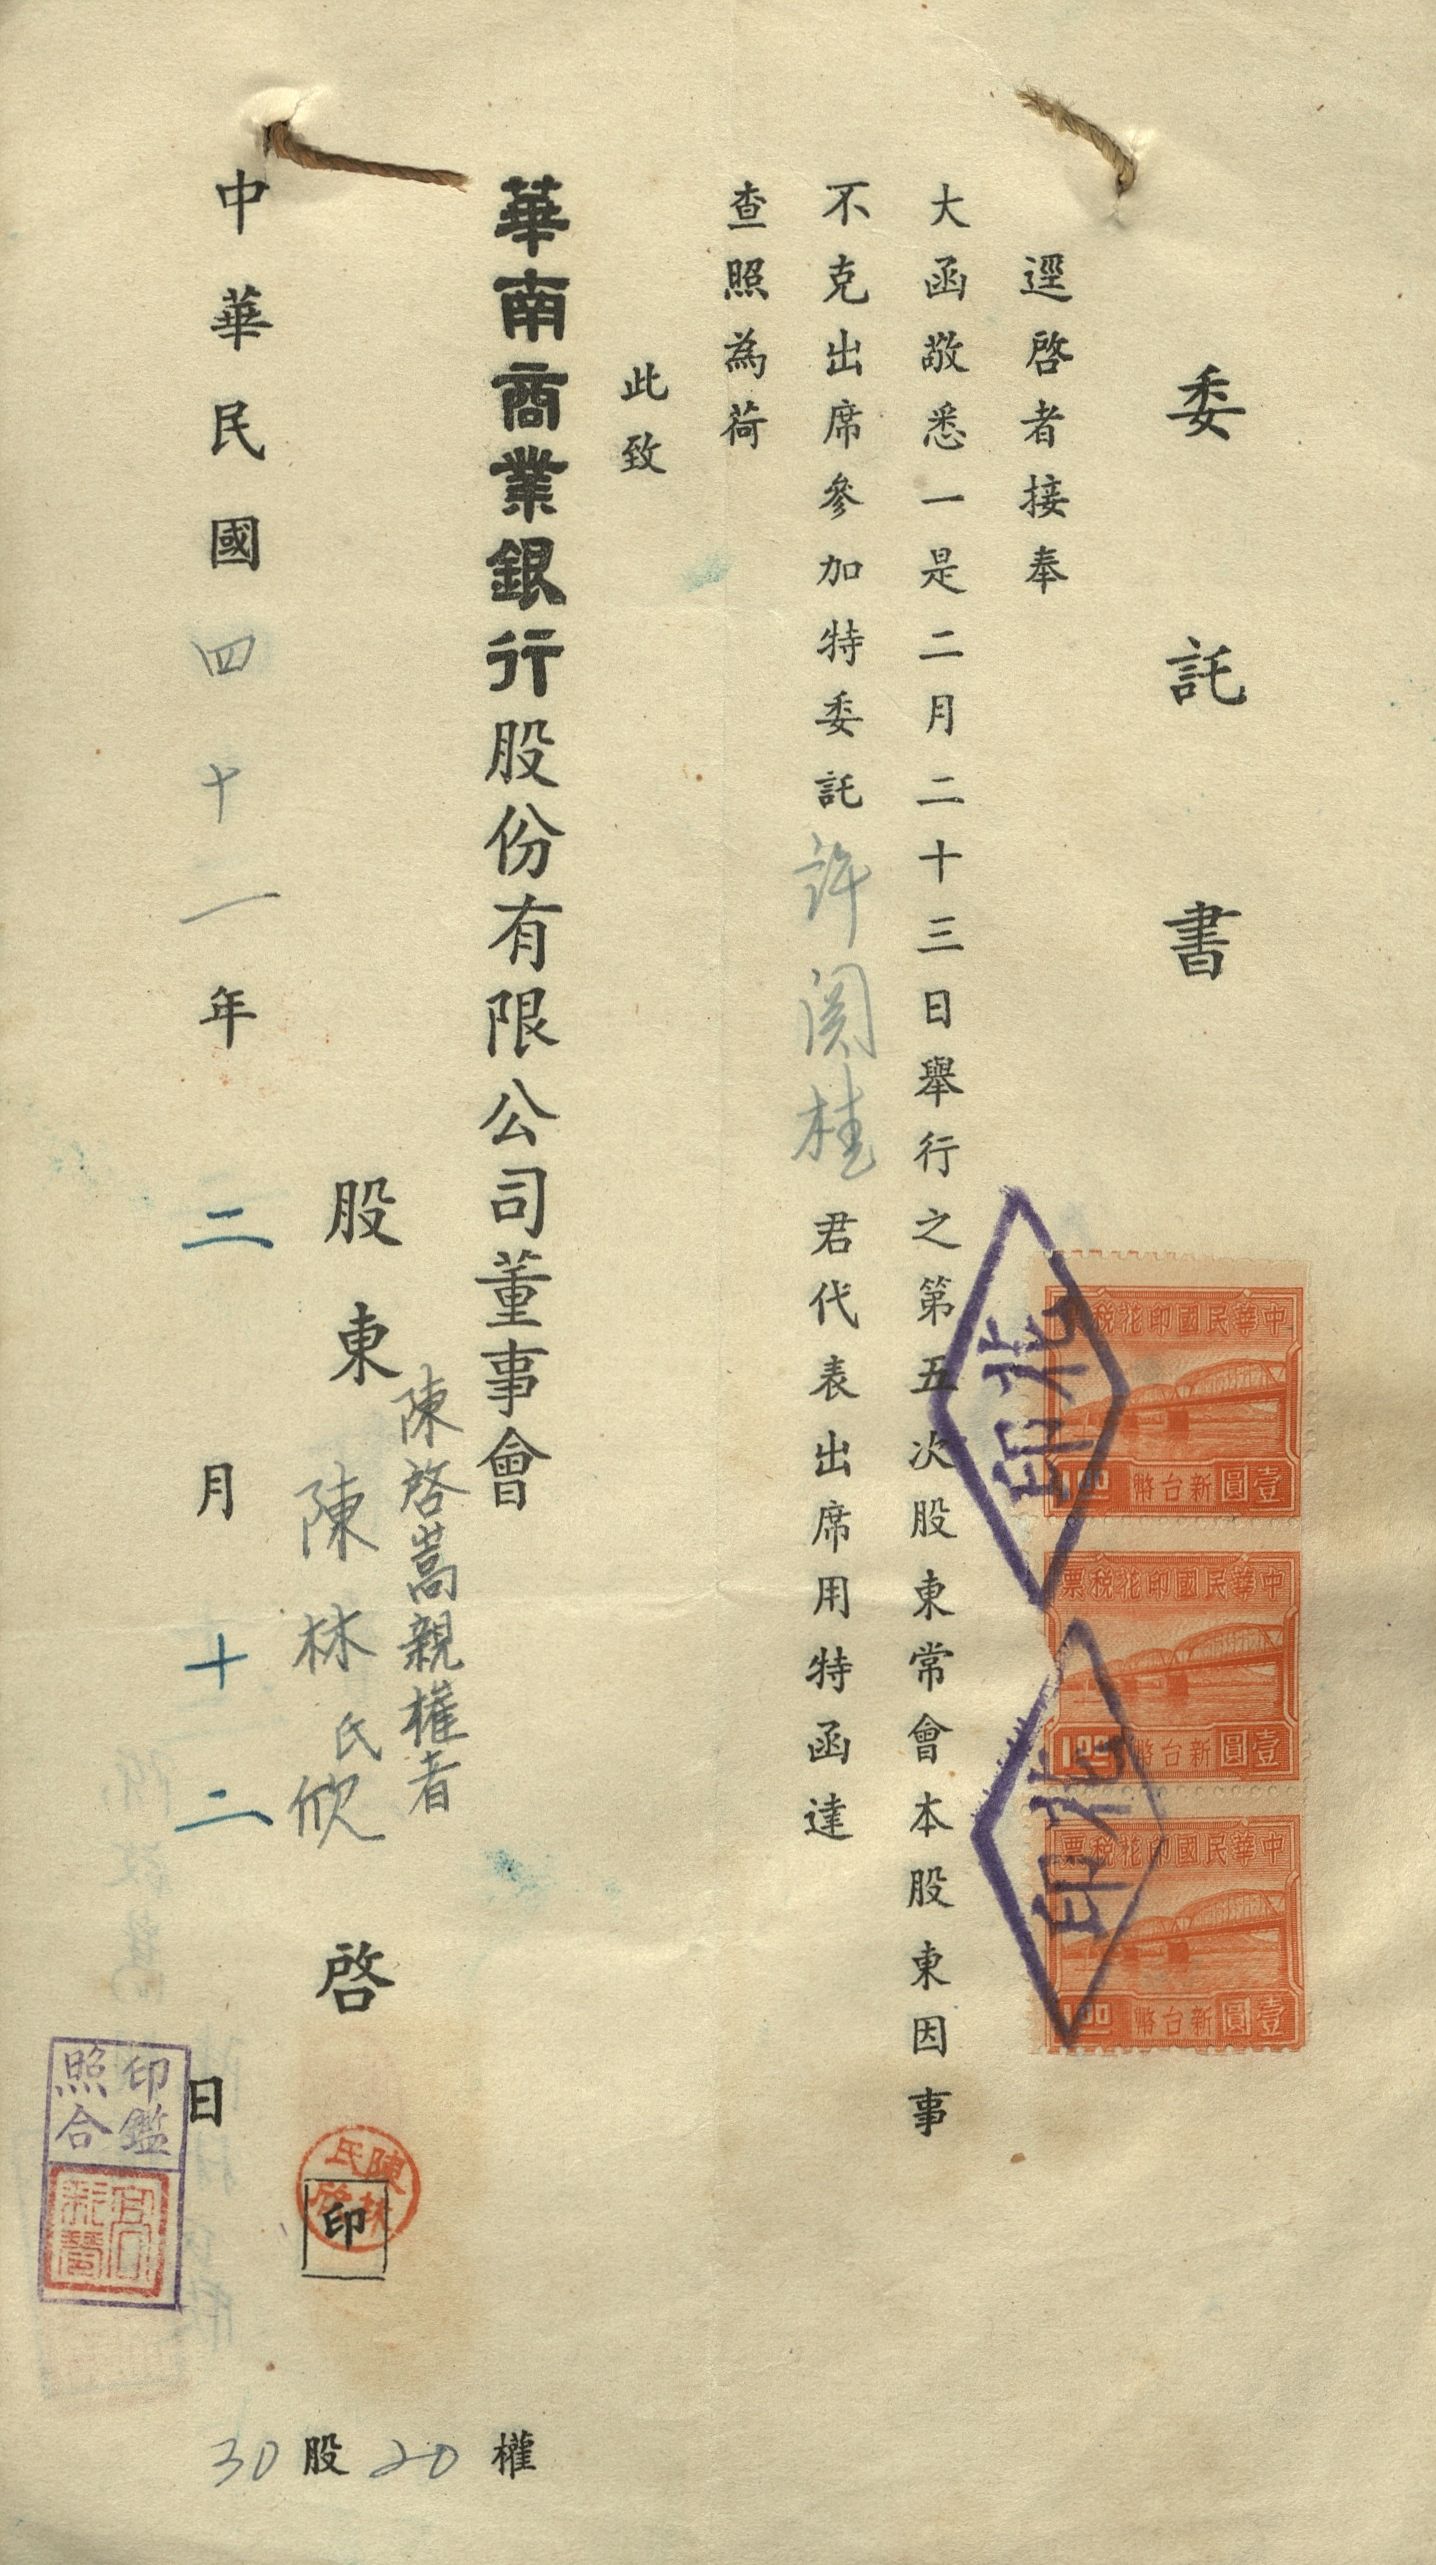 委託書
逕啓者接奉
大函敬悉一是二月二十三日舉行之第五次股東常會本股東因事
不克出席參加特委託許関桂君代表出席用特函達
查照為荷
此致
華南商業銀行股份有限公司董事會
陳啓嵩親權者
股東陳林氏欣啓
印
中華民國四十一年二月十二日
30股20權
中華民國印花稅票
新台幣壹圓
1.00
中華民國印花稅票
新台幣壹圓
1.00
中華民國印花稅票
新台幣壹圓
1.00
印花
印花
印鑑
照合